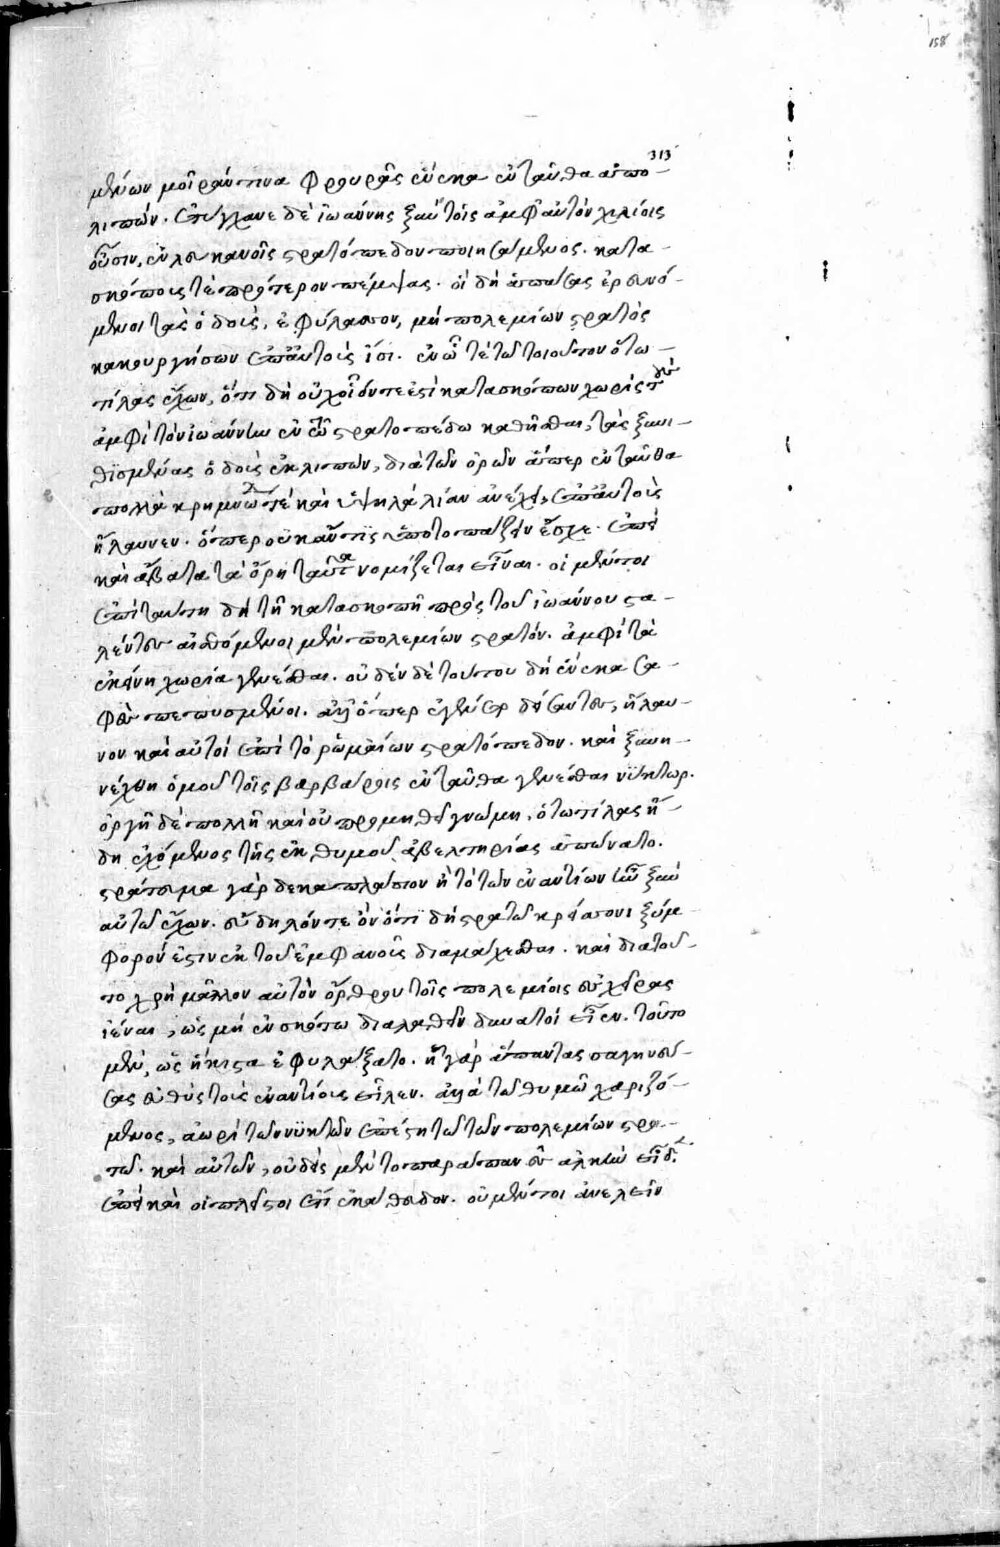 158
313
μένων μοῖράν τινα φρουρᾶς ἕνεκα ἐνταῦθα ἀπο-
λιπών. ἐτύγχανε δὲ ἰωάννης ξὺν τοῖς ἀμφ' αὐτὸν χιλίοις
οὖσιν, ἐν λευκανοῖς στρατόπεδον ποιησάμενος. κατα-
σκόπους τὲ πρότερον πέμψας. οἱ δὴ ἁπάσας ἐρευνό-
μενοι τὰς ὁδοὺς, ἐφύλασσον, μὴ πολεμίων στρατὸς
κακουργήσων ἐπ' αὐτοὺς ἴοι. ἐν ᾧ τὲ τω τοιοῦτον ὁ τω-
τίλας ἔχων, ὅτι δὴ οὐχ οἷόν τέ ἐστι κατασκόπων χωρὶς τοὺς
ἀμφὶ τὸν ἰωάννην ἐν τῷ στρατοπέδω καθῆσθαι, τὰς ξυνει-
θισμένας ὁδοὺς ἐκλιπὼν, διὰ τῶν ὀρῶν ἅπερ ἐνταῦθα
πολλὰ κρημνώδη τέ καὶ ὑψηλὰ λίαν ἀνέχει, ἐπ' αὐτοὺς
ἤλαυνεν. ὅπερ οὐκ ἄν τις ὑποτοπάζειν ἔσχε. ἐπεὶ
καὶ ἄβατα τὰ ὄρη ταῦτα νομίζεται εἶναι. οἱ μέντοι
ἐπὶ ταύτη δὴ τῆ κατασκοπῆ πρὸς τοῦ ἰωάννου στα-
λέντες αἰσθόμενοι μὲν πολεμίων στρατόν. ἀμφὶ τὰ
ἐκείνη χωρία γενέσθαι. οὐδὲν δὲ τούτου δὴ ἕνεκα σα-
φὲς πεπυσμένοι. ἀλλ' ὅπερ ἐγένετο δείσαντες, ἤλαυ-
νον καὶ αὐτοὶ ἐπὶ τὸ ῥωμαίων στρατόπεδον. καὶ ξυνη-
νέχθη ὁμοῦ τοῖς βαρβάροις ἐνταῦθα γενέσθαι νύκτωρ.
ὀργῆ δὲ πολλῆ καὶ οὐ προμηθεῖ γνώμη, ὁ τωτίλας ἤ-
δη ἐχόμενος τῆς ἐκ θυμοῦ ἀβελτηρίας ἀπώνατο.
στράτευμα γὰρ δεκαπλάσιον ἢ τὸ τῶν ἐναντίων ξὺν
αὐτῶ ἔχων. εὔδηλόν τε ὂν ὅτι δὴ στρατῶ κρείσσονι ξύμ-
φορόν ἐστιν ἐκ τοῦ ἐμφανοῦς διαμάχεσθαι. καὶ διὰ τοῦ-
το χρὴ μᾶλλον αὐτὸν ὄρθρου τοῖς πολεμίοις εἰς χεῖρας
ἰέναι, ὡς μὴ ἐν σκότω διαλαθεῖν δυνατοὶ εἶεν. τοῦτο
μὲν, ὡς ἥκιστα ἐφυλάξατο. ἦ γὰρ ἅπαντας σαγηνεύ-
σας εὐθὺς τοὺς ἐναντίους εἷλεν. ἀλλὰ τῶ θυμῶ χαριζό-
μενος, ἀωρὶ τῶν νυκτῶν ἐπέστη τῶ τῶν πολεμίων στρα-
τῶ. καὶ αὐτῶν, οὐδεὶς μὲν τοπαράπαν ἐς ἀλκὴν εἶδε.
ἐπεὶ καὶ οἱ πλεῖστοι ἔτι ἐκάθευδον. οὐ μέντοι ἀνελεῖν